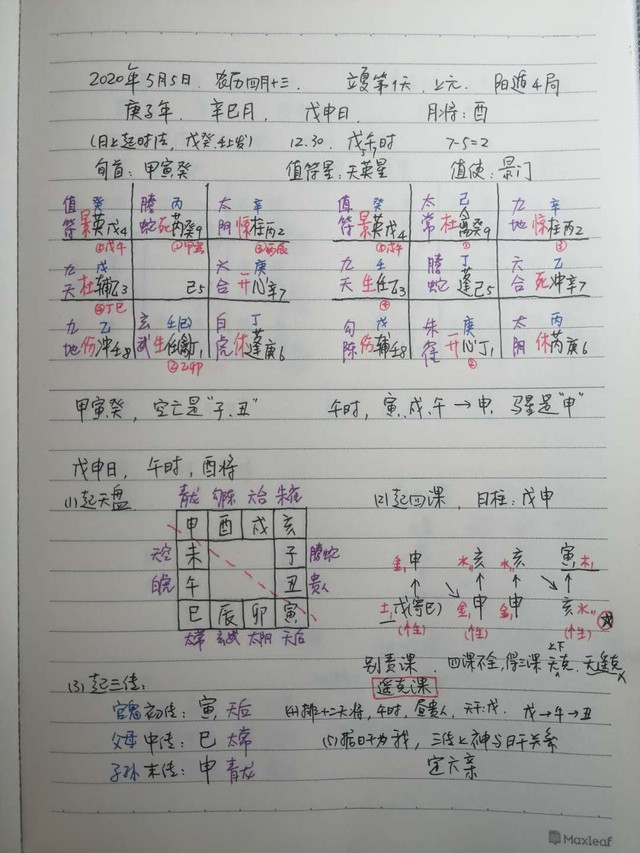 2020年5月5日、农历四月十三、 立夏第1天、上元、 阳遁4局
庚子年、 辛巳月、 戊申日、 月将:酉
(日上起时法,戊癸壬上发) 12.30、戊午时 7-5=2
旬首:甲寅癸 值符星:天英星 值使:景门
值 癸 螣 丙 太 辛 值 癸 太 己 九 辛
符 景英戊4 蛇 死芮癸9 阴 惊柱丙2 符 景英戊4 常 杜禽癸9 地 惊柱丙2
①戊4 ①甲寅 ③丙辰 ①戊4 ① ③
九 戊 六 庚 九 壬 螣 丁 六 乙
天 杜辅乙3 己5 合 开心辛7 天 生任乙3 蛇 蓬己5 合 死冲辛7
④丁巳 ④
九 乙 玄 壬(己) 白 丁 勾 戊 朱 庚 太 丙
地 伤冲壬8 武 生任禽丁1 虎 休蓬庚6 陈 伤辅壬8 雀 开心丁1 阴 休芮庚6
②乙卯
甲寅癸,空亡是“子、丑” 午时,寅、戌、午→申、马星是“申”
戊申日、午时,酉将
(1)起天盘 青龙 勾陈 六合 朱雀 (2)起四课、日柱:戊申
申 酉 戌 亥
天空 未 子 螣蛇 金申 水亥 水亥 寅木
白虎 午 丑 贵人
巳 辰 卯 寅 土戊(寄巳) 金申 金申 亥水
太常 玄武 太阴 天后 (个生) (个生) (个生)
别责课、四课不全,得三课 上下无克、无遥克
(3)起三传: 遥克课
官鬼初传:寅,天后 (4)排十二天将,午时,昼贵人,天干:戊、戊→午→丑
父母中传:巳 太常 (5)据日干为我,三传上神与日干关系
子孙末传:申 青龙 定六亲
Maxleaf